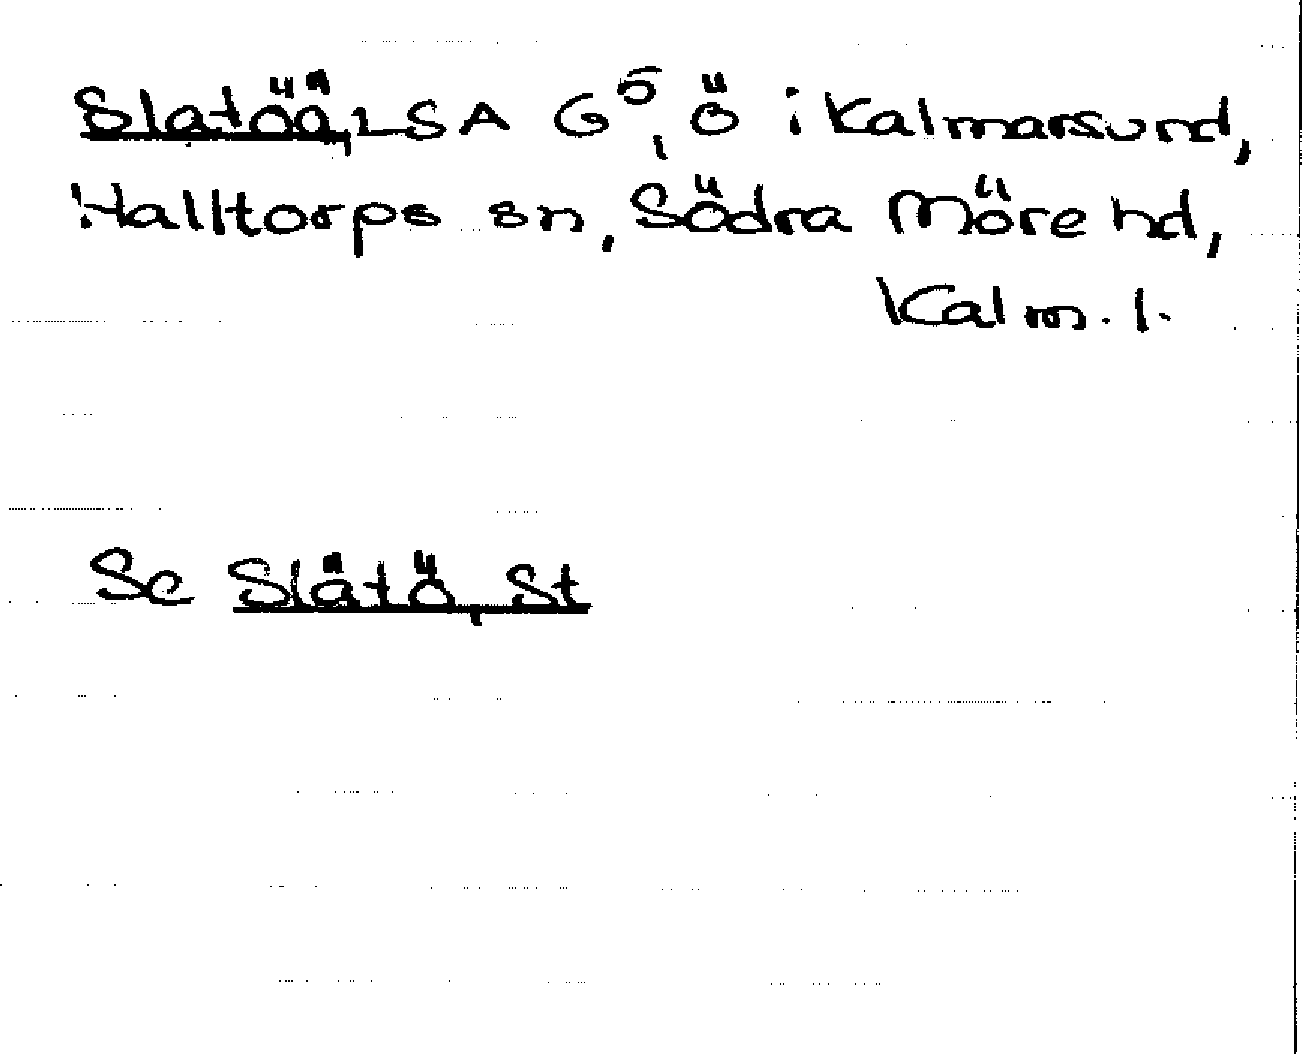 Slatöä, LSA G⁵, ö i Kalmarsund,
Halltorps sn, Södra Möre hd,
Kalm. l.
Se Slätö, St